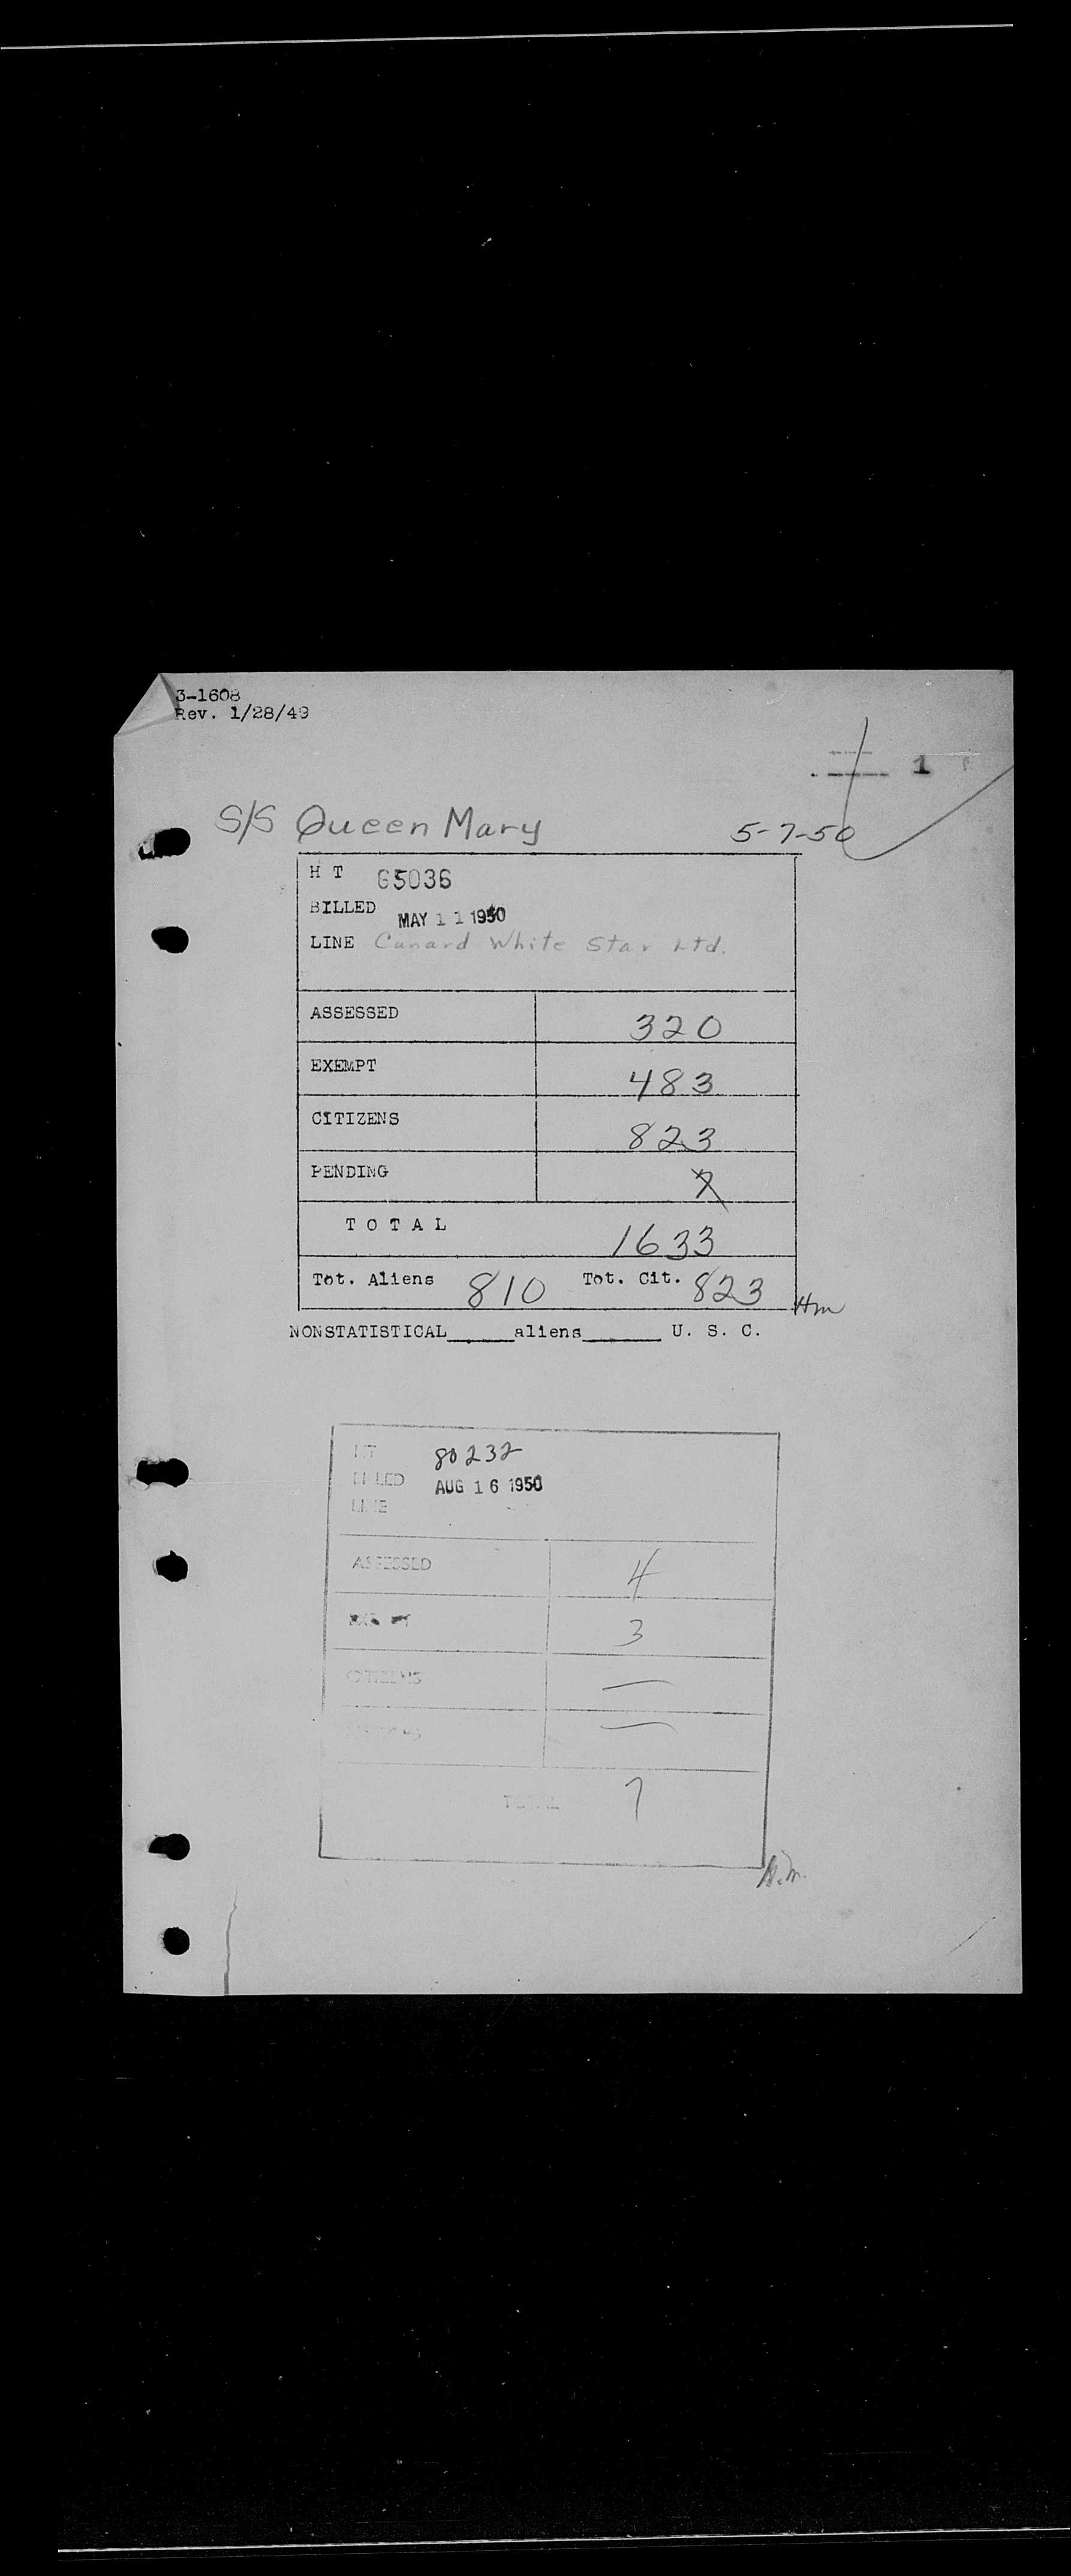 3-1608
Rev. 1/28/49
1
S/S Queen Mary 5-7-50
H T 65036
BILLED MAY 11 1950
LINE Cunard White Star Ltd.
ASSESSED 320
EXEMPT 483
CITIZENS 823
PENDING 7
TOTAL 1633
Tot. Aliens 810 Tot. Cit. 823 Hm
NONSTATISTICAL______aliens_______ U. S. C.
HT 80232
BILLED AUG 16 1950
LINE
ASSESSED 4
EXEMPT 3
CITIZENS —
—
TOTAL 7